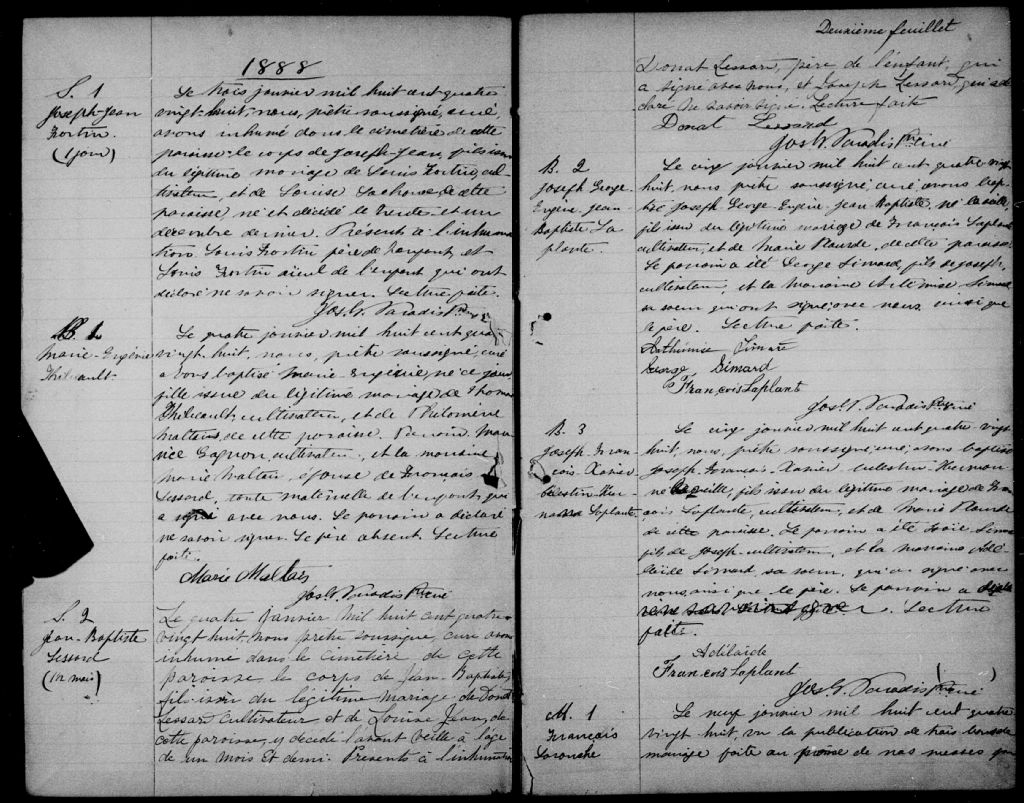 1888
S. 1
Joseph-Jean
Fortin.
(1 jour)
Le trois janvier mil huit cent quatre
vingt-huit, nous, prêtre soussigné, curé,
avons inhumé dans le cimetière de cette
paroisse le corps de Joseph-Jean, fils issu
du légitime mariage de Louis Fortin, cul-
tivateur, et de Louise Lachance de cette
paroisse, né et décédé le trente et un
décembre dernier. Présents à l'inhuma
tion Louis Fortin père de l'enfant, et
Louis Fortin aïeul de l'enfant qui ont
déclaré ne savoir signer. Lecture faite.
Jos. G. Paradis Ptre
B. 1
Marie-Eugénie
Thibeault.
Le quatre janvier mil huit cent qua
vingt-huit, nous, prêtre soussigné, curé
avons baptisé Marie-Eugénie, née ce jour
fille issue du légitime mariage de Thomas
Thibeault, cultivateur, et de Philomène
Maltais, de cette paroisse. Parrain Mau
rice Gagnon, cultivateur, et la marraine
Marie Maltais, épouse de François
Lessard, tante maternelle de l'enfant, qui
a signé avec nous. Le parrain a déclaré
ne savoir signer. Le père absent. Lecture
faite.
Marie Maltais
Jos. G. Paradis Ptre curé
S. 2
Jean-Baptiste
Lessard
(1½ mois)
Le quatre Janvier mil huit cent quatre
vingt huit, nous prêtre soussigné, curé avons
inhumé dans le cimetière de cette
paroisse le corps de Jean-Baptiste,
fils issu du légitime mariage de Donat
Lessard cultivateur et de Louise Jean, de
cette paroisse, y décédé l'avant veille à l'âge
de un mois et demi. Présents à l'inhumation
Deuxième feuillet
Donat Lessard, père de l'enfant, qui
a signé avec nous, et Joseph Lessard, qui a dé
claré ne savoir signer. Lecture faite
Donat Lessard
Jos. G. Paradis Ptre curé
B. 2
Joseph George
Eugène Jean
Baptiste La
plante.
Le cinq janvier mil huit cent quatre vingt
huit, nous prêtre soussigné, curé avons bap
tisé Joseph George-Eugène Jean Baptiste, né la veille,
fils issu du légitime mariage de François Laplante
cultivateur, et de Marie Plourde, de cette paroisse
Le parrain a été George Simard, fils de Joseph,
cultivateur, et la marraine Artémise Simard
sa soeur qui ont signé avec nous ainsi que
le père. Lecture faite.
Arthémise Simard
George Simard
François Laplant
Jos. G. Paradis Ptre curé
B. 3
Joseph Fran
çois-Xavier
Célestin-Her-
Laplante
Le cinq janvier mil huit cent quatre vingt
huit, nous, prêtre soussigné, curé, avons baptisé
Joseph François-Xavier Célestin-
né la veille, fils issu du légitime mariage de Fran
çois Laplante, cultivateur, et de Marie Plourde
de cette paroisse. Le parrain a été Simard
fils de Joseph-cultivateur, et la marraine Adé
laïde Simard sa soeur, qui a signé avec
nous, ainsi que le père. Le parrain a
ne savoir signer. Lecture
faite.
Adélaide
François Laplant
Jos. G. Paradis Ptre curé
M. 1
François
Le neuf janvier mil huit cent quatre
vingt huit, vu la publication de trois bans de
mariage faite au prône de nos messes